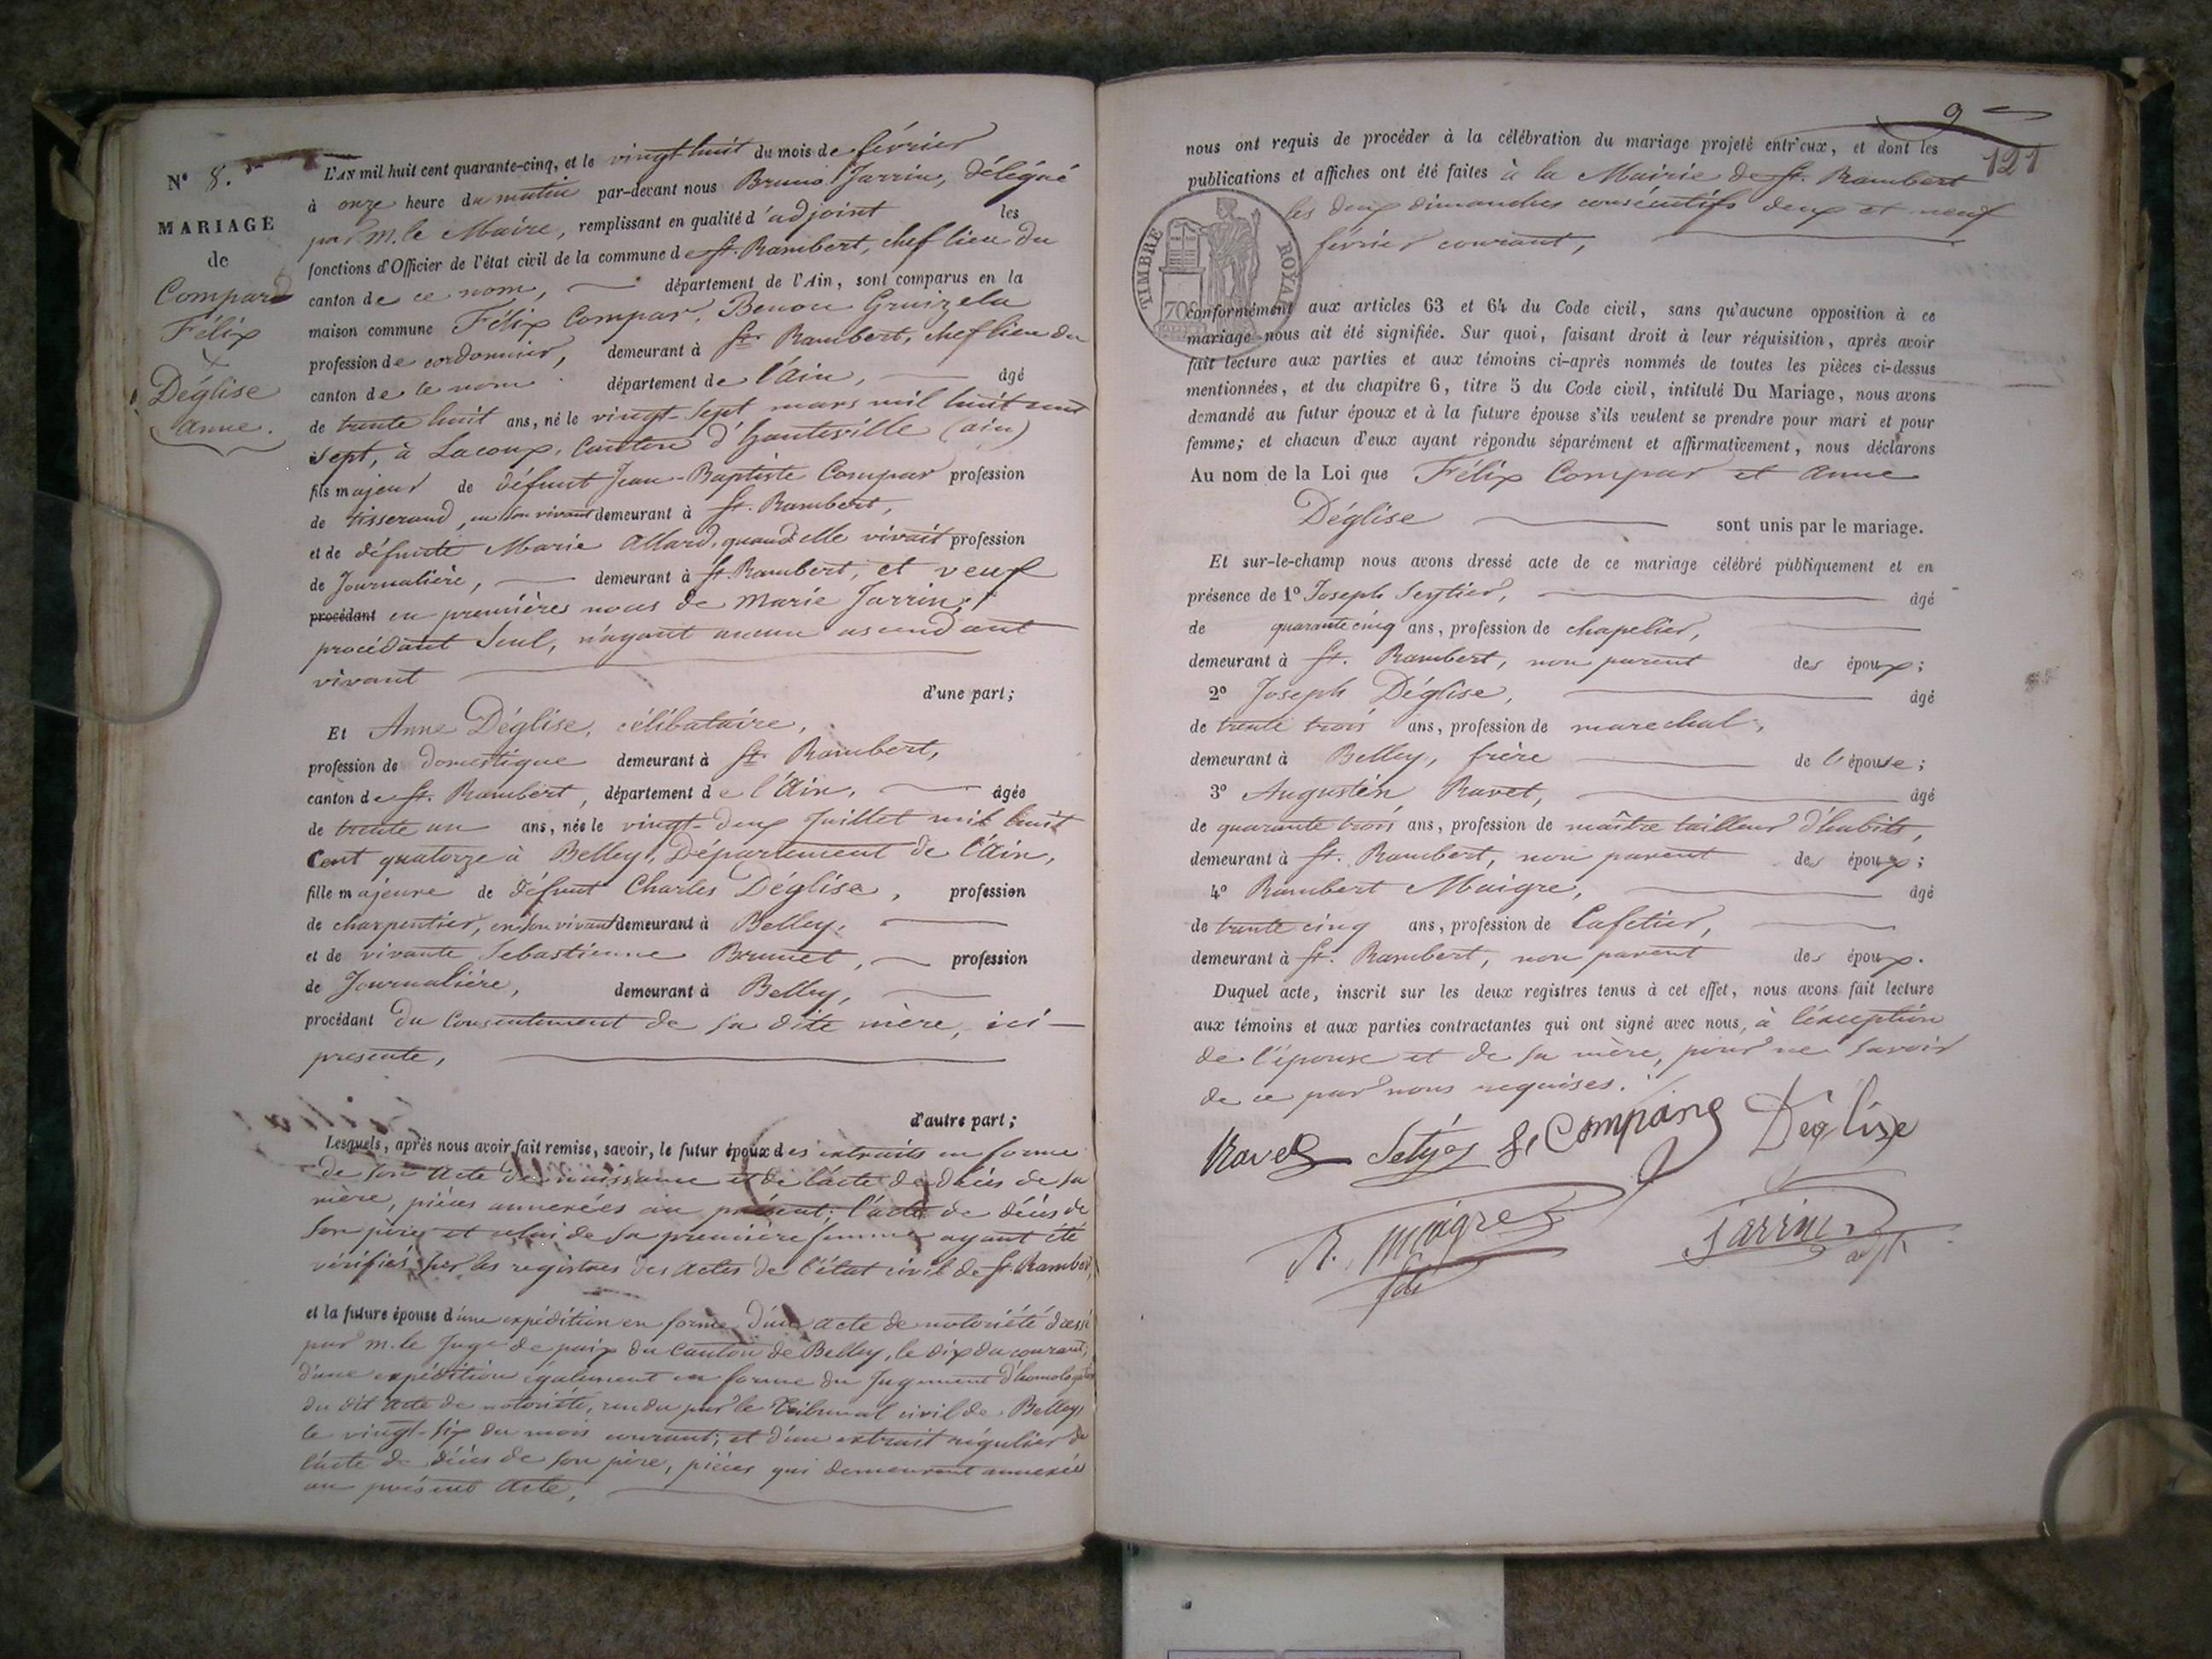 N° 8.
MARIAGE
de
Compard
Félix
&
Déglise
Anne.
L'AN mil huit cent quarante-cinq, et le vingt-huit du mois de février
à onze heure du matin par-devant nous Bruno Jarrin, délégué
par M. le Maire, remplissant en qualité d'adjoint les
fonctions d'Officier de l'état civil de la commune de St. Rambert, chef lieu du
canton de ce nom, département de l'Ain, sont comparus en la
maison commune Félix Compar, Benou Gruizela
profession de cordonnier, demeurant à St. Rambert, chef lieu du
canton de ce nom département de l'Ain, âgé
de trente huit ans, né le vingt-sept mars mil huit cent
sept, à Lacoux, Canton d'hauteville (ain)
fils majeur de défunt Jean-Baptiste Compar profession
de tisserand, en son vivant demeurant à St. Rambert,
et de défunte Marie Allard, quand elle vivait profession
de Journalière, demeurant à St. Rambert, et veuf
procédant en premières noces de Marie Jarrin,
procédant seul, n'ayant aucun ascendant
vivant
d'une part;
Et Anne Déglise, célibataire,
profession de domestique demeurant à St. Rambert,
canton de St. Rambert, département de l'Ain, âgée
de trente un ans, née le vingt-deux Juillet mil huit
Cent quatorze à Belley, Département de l'Ain,
fille majeure de défunt Charles Déglise, profession
de charpentier, en son vivant demeurant à Belley,
et de vivante Sebastienne Brunet, profession
de Journalière, demeurant à Belley,
procédant du Consentement de sa dite mère, ici
presente,
d'autre part;
Lesquels, après nous avoir fait remise, savoir, le futur époux des extraits en forme
de son acte de naissance et de l'acte de décès de sa
mère, pièces annexées au présent; l'acte de décès de
son père et celui de sa première femme ayant été
vérifiés sur les registres des actes de l'état civil de St. Rambert,
et la future épouse d'une expédition en forme d'un acte de notoriété dressé
par M. le Juge de paix du Canton de Belley, le dix du courant,
d'une expédition également en forme du Jugement d'homologation
du dit acte de notoriété, rendu par le Tribunal civil de Belley
le vingt-six du mois courant; et d'un extrait régulier de
l'acte de décès de son père, pièces qui demeurent annexées
au présent acte,
9
121
nous ont requis de procéder à la célébration du mariage projeté entr'eux, et dont les
publications et affiches ont été faites à la Mairie de St. Rambert
les deux dimanches consécutifs deux et neuf
février courant,
TIMBRE ROYAL
70
conformément aux articles 63 et 64 du Code civil, sans qu'aucune opposition à ce
mariage nous ait été signifiée. Sur quoi, faisant droit à leur réquisition, après avoir
fait lecture aux parties et aux témoins ci-après nommés de toutes les pièces ci-dessus
mentionnées, et du chapitre 6, titre 5 du Code civil, intitulé Du Mariage, nous avons
demandé au futur époux et à la future épouse s'ils veulent se prendre pour mari et pour
femme; et chacun d'eux ayant répondu séparément et affirmativement, nous déclarons
Au nom de la Loi que Félix Compar et Anne
Déglise sont unis par le mariage.
Et sur-le-champ nous avons dressé acte de ce mariage célébré publiquement et en
présence de 1° Joseph âgé
de quarante cinq ans, profession de chapelier,
demeurant à St. Rambert, non parent des époux;
2° Joseph Déglise, âgé
de trente trois ans, profession de marechal,
demeurant à Belley, frère de l'épouse;
3° Augustin Ravet, âgé
de quarante trois ans, profession de maître tailleur d'habits,
demeurant à St. Rambert, non parent des époux;
4° Rambert Maigre, âgé
de trente cinq ans, profession de Cafetier,
demeurant à St. Rambert, non parent des époux.
Duquel acte, inscrit sur les deux registres tenus à cet effet, nous avons fait lecture
aux témoins et aux parties contractantes qui ont signé avec nous, à l'éxception
de l'épouse et de sa mère, pour ne savoir
de ce par nous requises.
Ravet Compard Déglise
R. Maigre Jarrin
adjt